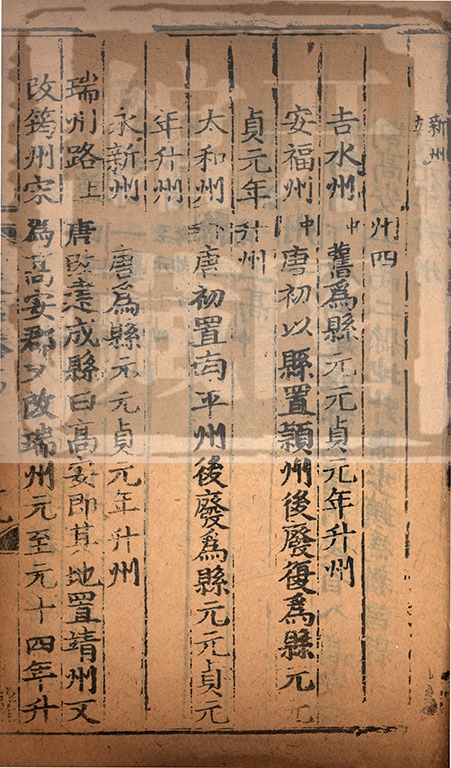 州四
吉水州中舊爲縣元元貞元年升州
安福州中唐初以縣置潁州後廢復爲縣元元
貞元年升州
太和州唐初置南平州後廢爲縣元元貞元
年升州
永新州唐爲縣元元貞元年升州
瑞州路上唐改建成縣曰高安即其地置靖州又
改筠州宋爲高安郡又改瑞州元至元十四年升